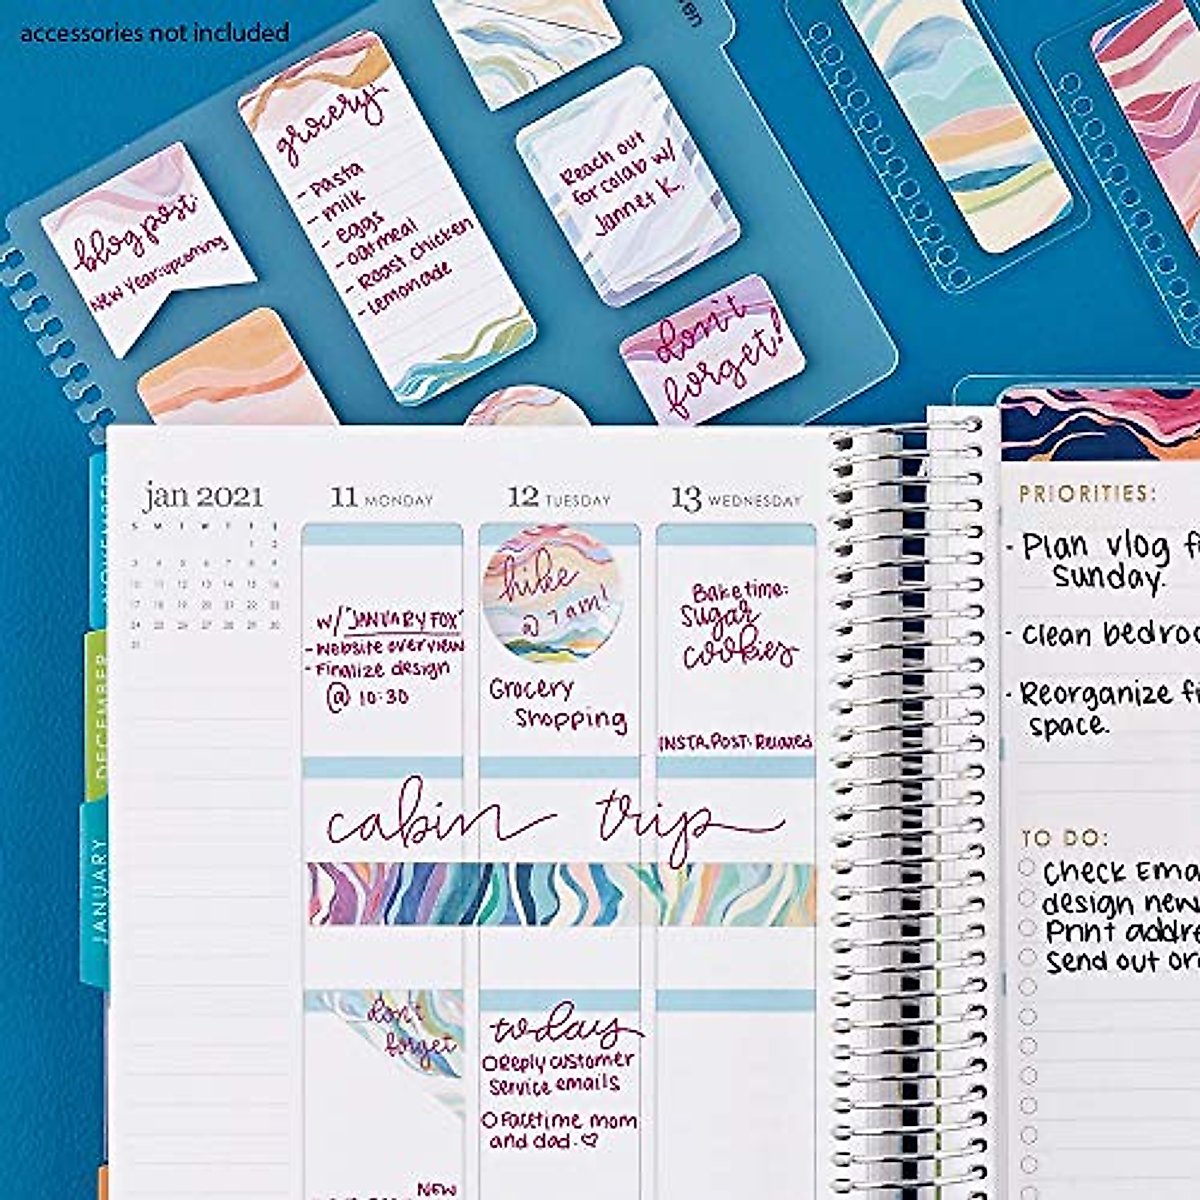 accessories not included
blog post
New Year:upcoming
grocery
- Pasta
- milk
- eggs
- oatmeal
- Roast Chicken
- Lemonade
Reach out
for colab w/
Jannet K.
don't
forget!
NOVEMBER
DECEMBER
JANUARY
jan 2021
S M T W T F S
1 2
3 4 5 6 7 8 9
10 11 12 13 14 15 16
17 18 19 20 21 22 23
24 25 26 27 28 29 30
31
11 MONDAY
w/ "JANUARY FOX"
- Website overview
- Finalize design
@ 10:30
12 TUESDAY
hike
@ 7am!
Grocery
Shopping
13 WEDNESDAY
Bake time:
Sugar
cookies
INSTA POST: Relaxed
cabin trip
don't
forget
NEW
today
Reply customer
Service emails
Facetime mom
and dad. ♡
PRIORITIES:
- Plan vlog
Sunday.
- Clean
- Reorganize
space.
TO DO:
Check
design new
Print
Send out